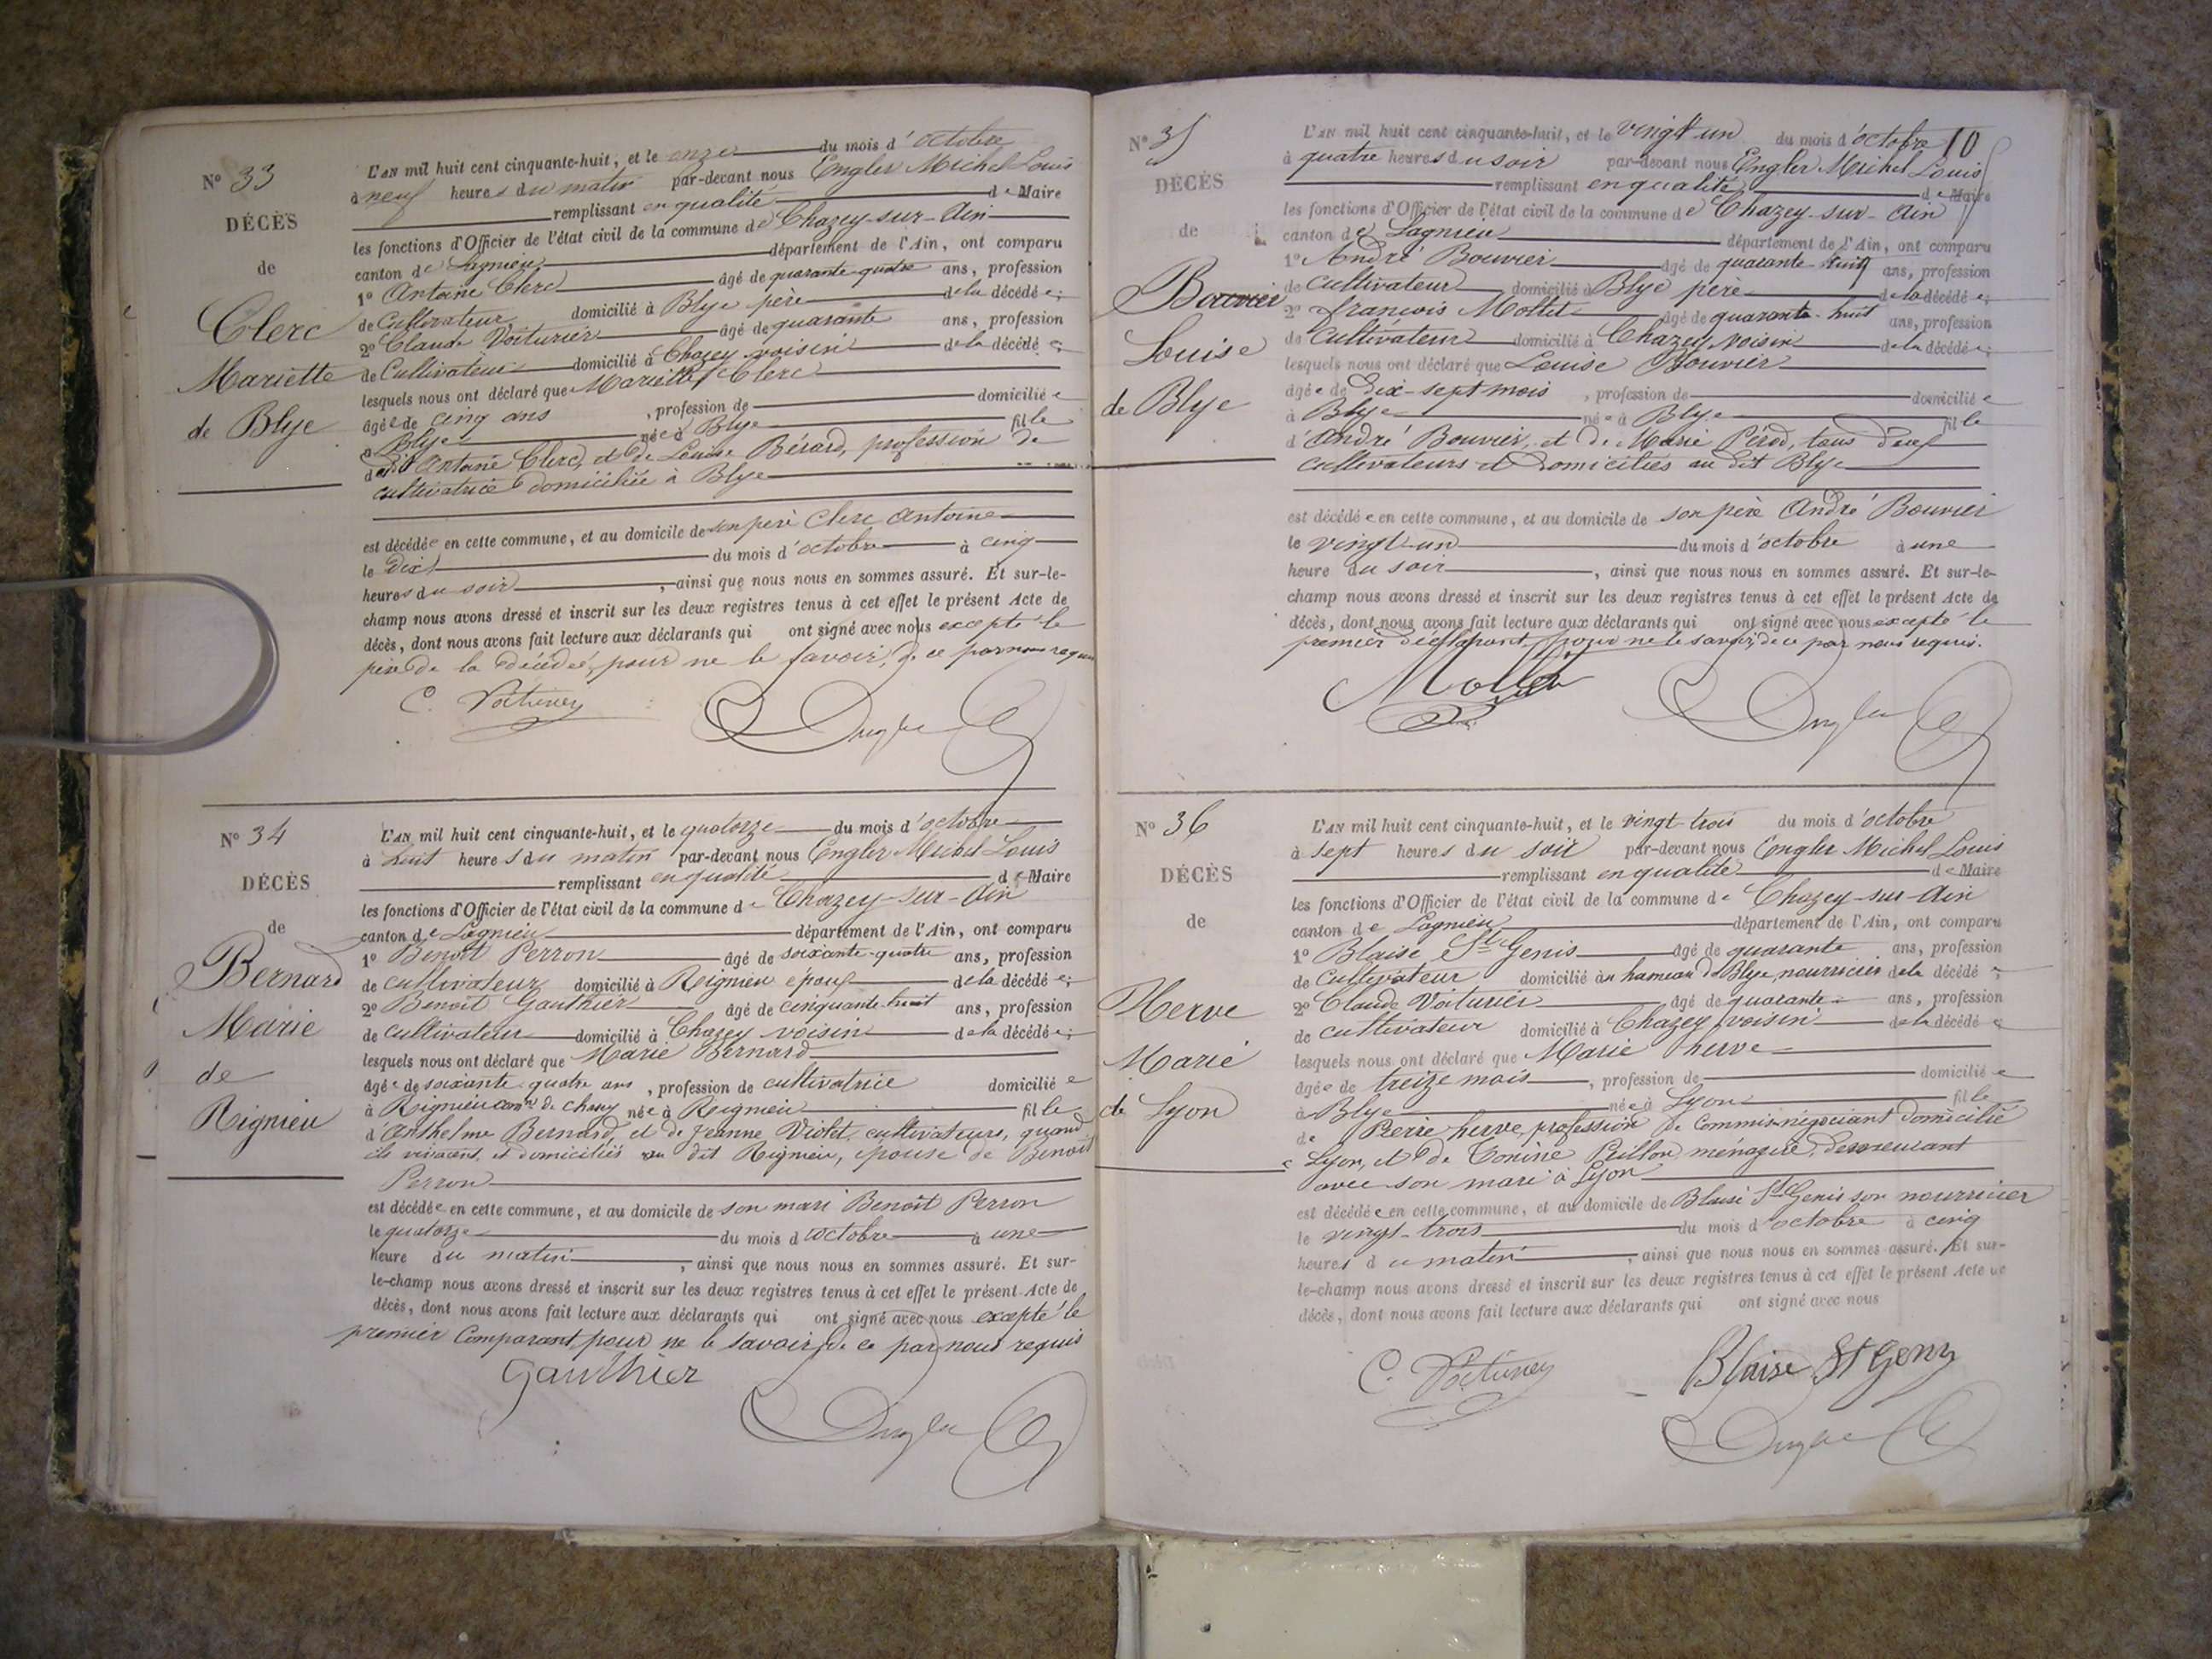 N° 33
DÉCÈS
de
Clerc
Mariette
de Blye
L'AN mil huit cent cinquante-huit, et le onze du mois d'octobre
à neuf heures du matin par-devant nous Engler Michel Louis
remplissant en qualité de Maire
les fonctions d'Officier de l'état civil de la commune de Chazey-sur-Ain
canton de Lagnieu département de l'Ain, ont comparu
1° Antoine Clerc âgé de quarante-quatre ans, profession
de Cultivateur domicilié à Blye père de la décédée;
2° Claude Voiturier âgé de quarante ans, profession
de Cultivateur domicilié à Chazey voisin de la décédée;
lesquels nous ont déclaré que Mariette Clerc
âgée de cinq ans, profession de domiciliée
à Blye née à Blye fille
dudit Antoine Clerc, et de Louise Bérard, profession de
cultivatrice domiciliée à Blye
est décédée en cette commune, et au domicile de son père Clerc Antoine
le dix du mois d'octobre à cinq
heures du soir, ainsi que nous nous en sommes assuré. Et sur-le-
champ nous avons dressé et inscrit sur les deux registres tenus à cet effet le présent Acte de
décès, dont nous avons fait lecture aux déclarants qui ont signé avec nous excepté le
père de la décédée, pour ne le savoir, de ce par nous requis
C. Voiturier
Engler
N° 34
DÉCÈS
de
Bernard
Marie
de
Rignieu
L'AN mil huit cent cinquante-huit, et le quatorze du mois d'octobre
à huit heures du matin par-devant nous Engler Michel Louis
remplissant en qualité de Maire
les fonctions d'Officier de l'état civil de la commune de Chazey-sur-Ain
canton de Lagnieu département de l'Ain, ont comparu
1° Benoit Perron âgé de soixante-quatre ans, profession
de cultivateur domicilié à Rignieu époux de la décédée;
2° Benoit Gauthier âgé de cinquante-huit ans, profession
de cultivateur domicilié à Chazey voisin de la décédée;
lesquels nous ont déclaré que Marie Bernard
âgée de soixante quatre ans, profession de cultivatrice domiciliée
à Rignieu comne de Chazey née à Rignieu fille
d'Anthelme Bernard, et de Jeanne Violet, cultivateurs, quand
ils vivaient, et domiciliés au dit Rignieu, épouse de Benoit
Perron
est décédée en cette commune, et au domicile de son mari Benoit Perron
le quatorze du mois d'octobre à une
heure du matin, ainsi que nous nous en sommes assuré. Et sur-
le-champ nous avons dressé et inscrit sur les deux registres tenus à cet effet le présent Acte de
décès, dont nous avons fait lecture aux déclarants qui ont signé avec nous excepté le
premier comparant pour ne le savoir, de ce par nous requis
Gauthier
Engler
10
N° 35
DÉCÈS
de
Bouvier
Louise
de Blye
L'AN mil huit cent cinquante-huit, et le vingt-un du mois d'octobre
à quatre heures du soir par-devant nous Engler Michel Louis
remplissant en qualité de Maire
les fonctions d'Officier de l'état civil de la commune de Chazey-sur-Ain
canton de Lagnieu département de l'Ain, ont comparu
1° André Bouvier âgé de quarante-huit ans, profession
de cultivateur domicilié à Blye père de la décédée;
2° François Mollet âgé de quarante-huit ans, profession
de Cultivateur domicilié à Chazey voisin de la décédée;
lesquels nous ont déclaré que Louise Bouvier
âgée de dix-sept mois, profession de domiciliée
à Blye née à Blye fille
d'André Bouvier, et de Marie Pérod, tous deux
cultivateurs et domiciliés au dit Blye
est décédée en cette commune, et au domicile de son père André Bouvier
le vingt-un du mois d'octobre à une
heure du soir, ainsi que nous nous en sommes assuré. Et sur-le-
champ nous avons dressé et inscrit sur les deux registres tenus à cet effet le présent Acte de
décès, dont nous avons fait lecture aux déclarants qui ont signé avec nous excepté le
premier déclarant, pour ne le savoir, de ce par nous requis.
Mollet
Engler
N° 36
DÉCÈS
de
Herve
Marie
de Lyon
L'AN mil huit cent cinquante-huit, et le vingt-trois du mois d'octobre
à sept heures du soir par-devant nous Engler Michel Louis
remplissant en qualité de Maire
les fonctions d'Officier de l'état civil de la commune de Chazey-sur-Ain
canton de Lagnieu département de l'Ain, ont comparu
1° Blaise St Genis âgé de quarante ans, profession
de cultivateur domicilié au hameau de Blye, nourricier de la décédée
2° Claude Voiturier âgé de quarante ans, profession
de cultivateur domicilié à Chazey voisin de la décédée
lesquels nous ont déclaré que Marie herve
âgée de treize mois, profession de domiciliée
à Blye née à Lyon fille
de Pierre herve, profession de Commis-négociant domicilié
à Lyon, et de Tonine Peillon, ménagère, demeurant
avec son mari à Lyon
est décédée en cette commune, et au domicile de Blaise St Genis son nourricier
le vingt-trois du mois d'octobre à cinq
heures du matin, ainsi que nous nous en sommes assuré. Et sur-
le-champ nous avons dressé et inscrit sur les deux registres tenus à cet effet le présent Acte de
décès, dont nous avons fait lecture aux déclarants qui ont signé avec nous
C. Voiturier
Blaise St Geny
Engler